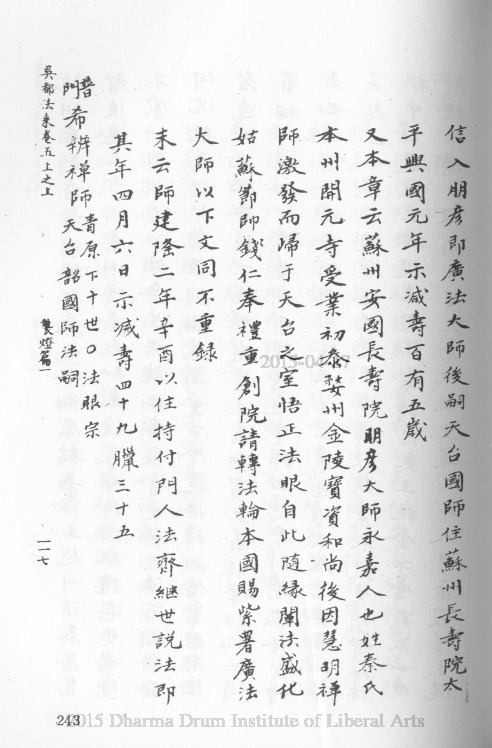 信入朋彥即廣法大師後嗣天台國師住蘇州長壽院太
平興國元年示滅壽百有五歲
又本章云蘇州安國長壽院朋彥大師永嘉人也姓秦氏
本州開元寺受業初叅婺州金陵寶資和尚後因慧明禅
師激發而歸于天台之室悟正法眼自此随緣闡法盛化
姑蘇節帥錢仁奉禮重創院請轉法輪本國賜紫署廣法
大師以下文同不重錄
末云師建隆二年辛酉以住持付門人法齊継世說法即
其年四月六日示滅壽四十九臘三十五
普門希辨禅師青原下十世○法眼宗天台韶國師法嗣
吳都法乘卷五上之上
襲燈篇一
一一七
243
2015-04-17
2015 Dharma Drum Institute of Liberal Arts